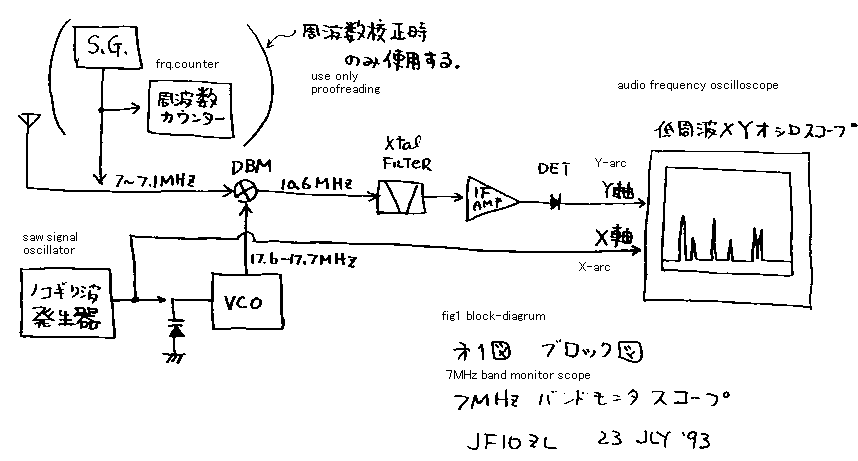 S.G.
周波数校正時
のみ使用する.
frq.counter
use only
proofreading
周波数
カウンター
audio frequency oscilloscope
低周波XYオシロスコープ
7~7.1MHZ
DBM
10.6MHZ
Xtal
FiLTER
IF
AMP
DET
Y-arc
Y軸
X軸
X-arc
saw signal
oscillator
ノコギリ波
発生器
17.6-17.7MHZ
VCO
fig1 block-diagrum
才1図 ブロック図
7MHz band monitor scope
7MHz バンドモニタスコープ
JF1OZL 23 JLY '93